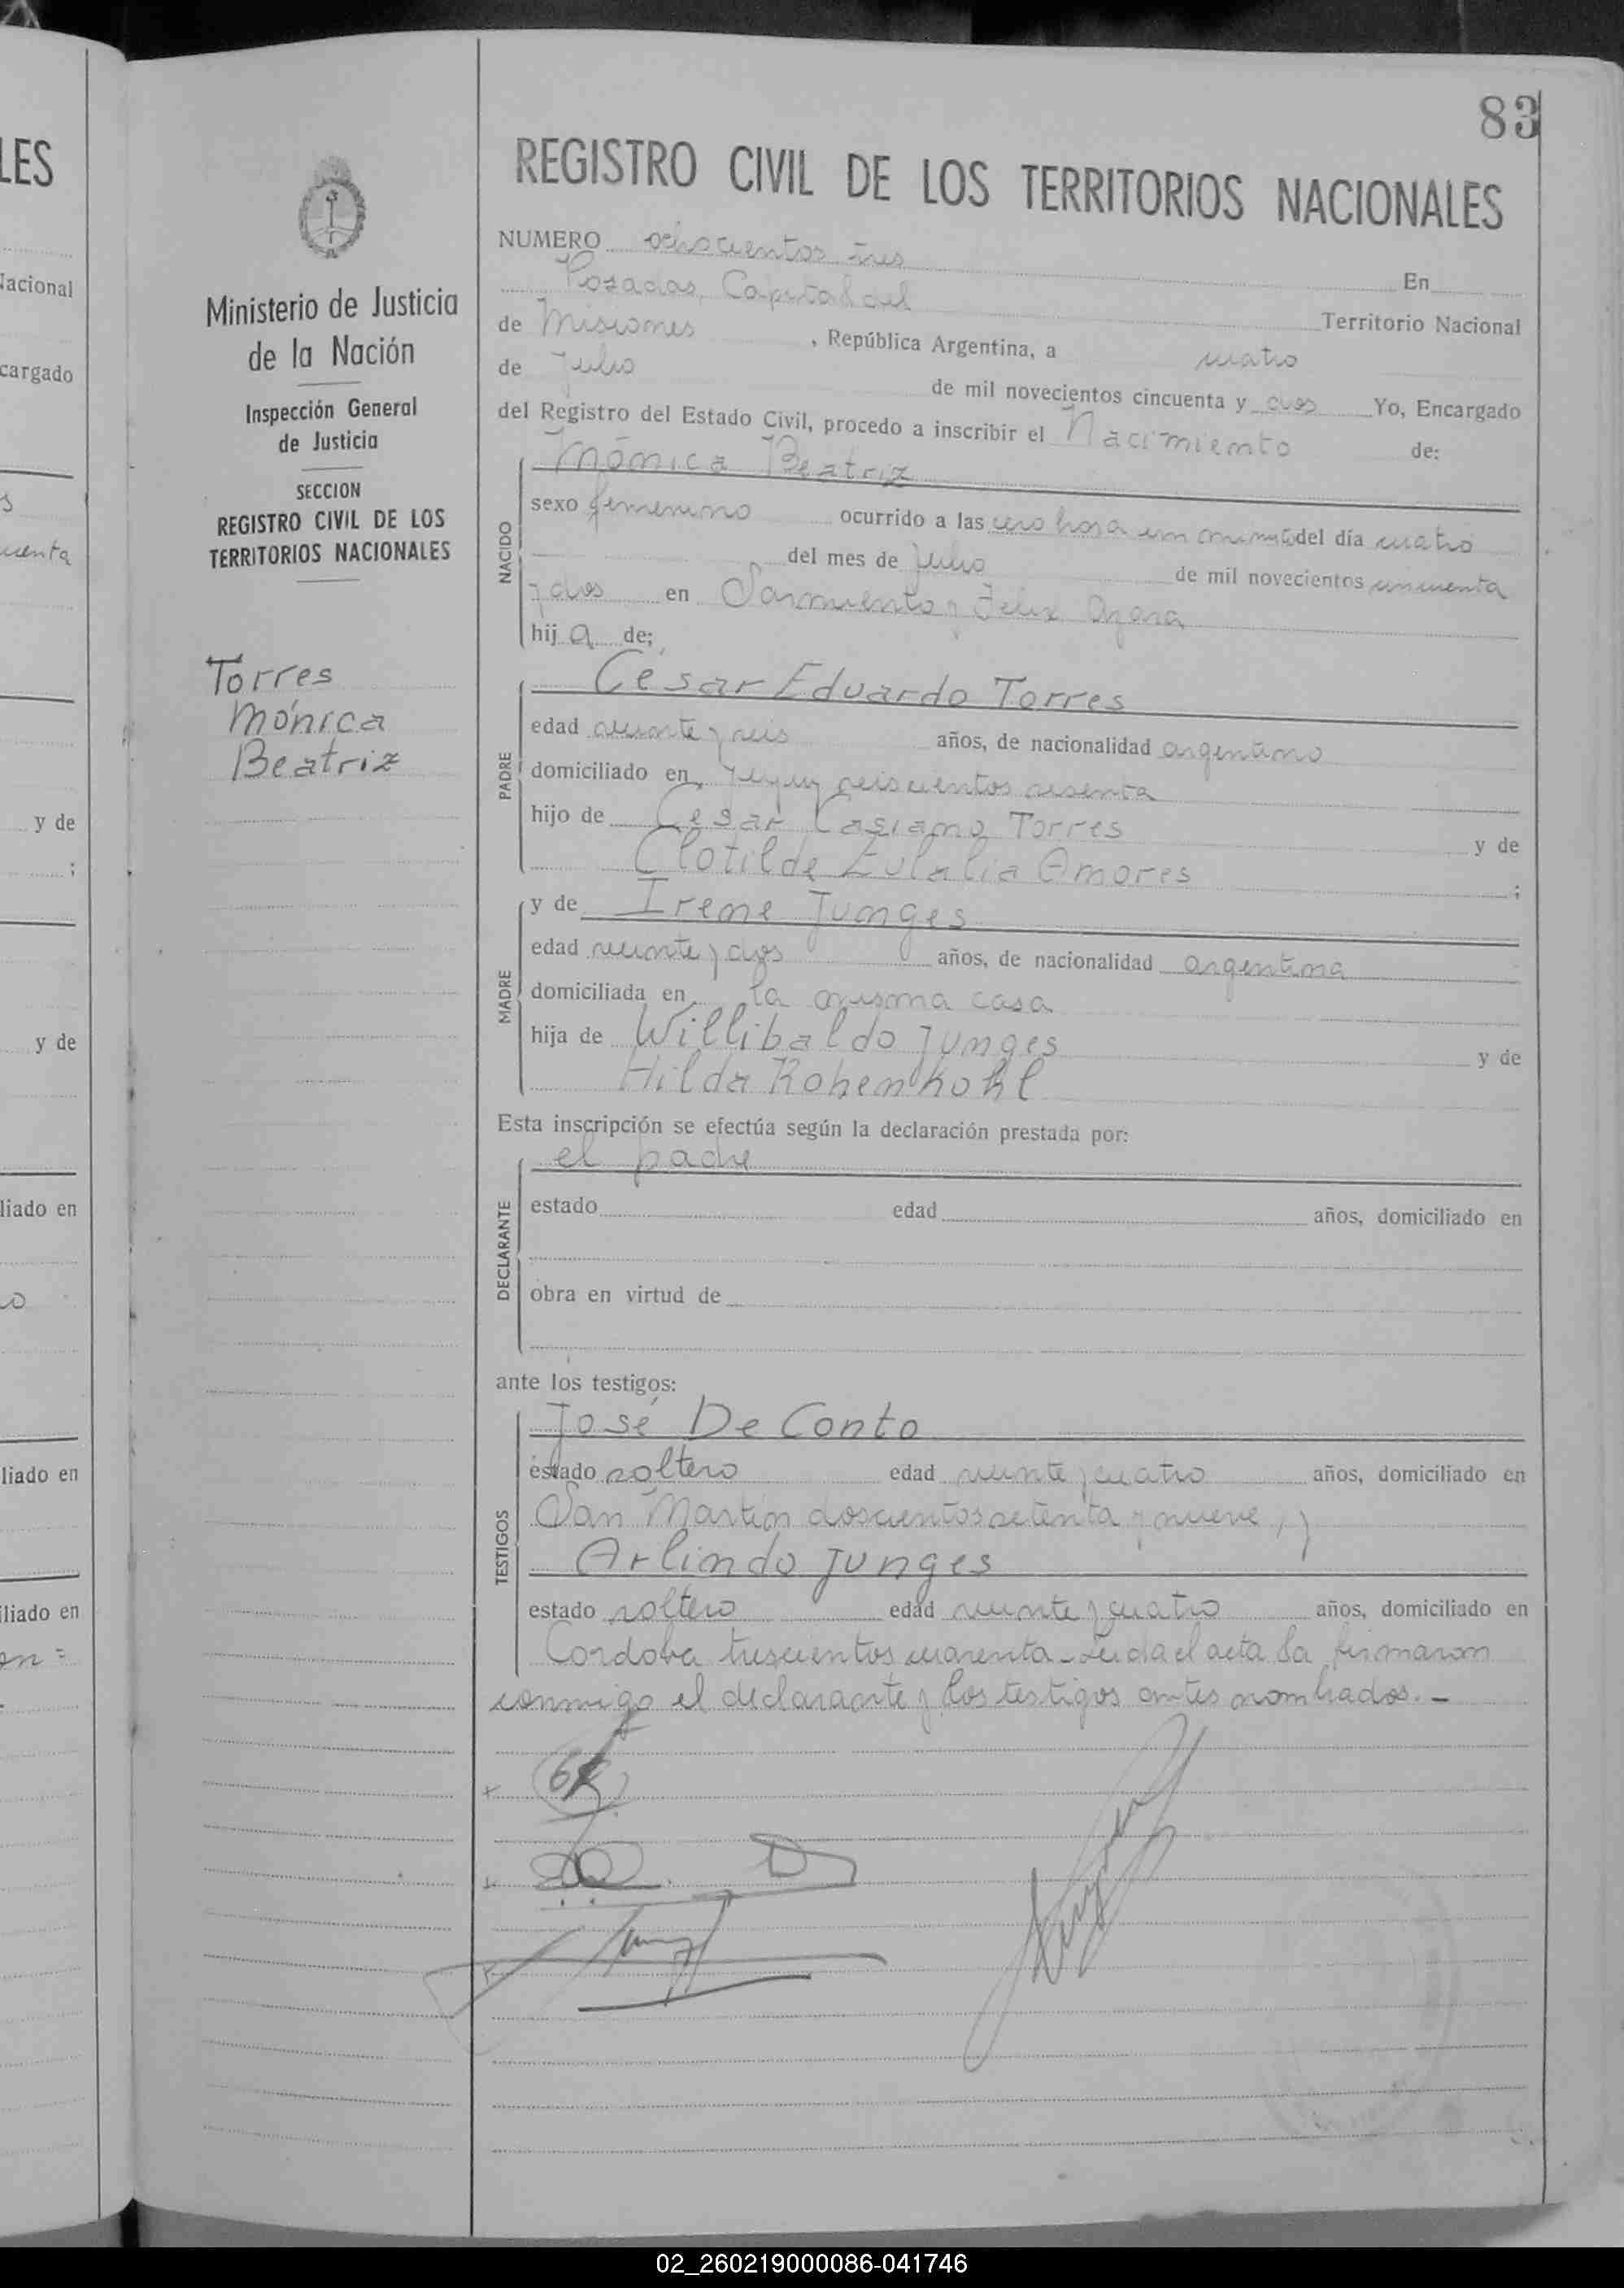 83
LES
Nacional
cargado
y de
;
y de
liado en
liado en
iliado en
Ministerio de Justicia
de la Nación
Inspección General
de Justicia
SECCION
REGISTRO CIVIL DE LOS
TERRITORIOS NACIONALES
Torres
Mónica
Beatriz
REGISTRO CIVIL DE LOS TERRITORIOS NACIONALES
NUMERO ochocientos tres En
Posadas, Capital del Territorio Nacional
de Misiones, República Argentina, a cuatro
de Julio de mil novecientos cincuenta y dos Yo, Encargado
del Registro del Estado Civil, procedo a inscribir el Nacimiento de:
Mónica Beatriz
NACIDO
sexo femenino ocurrido a las cero hora un minuto del día cuatro
del mes de Julio de mil novecientos cincuenta
y dos en Sarmiento y Felix Azara
hija de;
César Eduardo Torres
PADRE
edad veinte y seis años, de nacionalidad argentino
domiciliado en Jujuy seiscientos sesenta
hijo de Cesar Casiano Torres y de
Clotilde Eulalia Amores ;
MADRE
y de Irene Junges
edad veinte y dos años, de nacionalidad argentina
domiciliada en la misma casa
hija de Willibaldo Junges y de
Hilda Rohenkohl
Esta inscripción se efectúa según la declaración prestada por:
el padre
DECLARANTE
estado edad años, domiciliado en
obra en virtud de
ante los testigos:
TESTIGOS
José De Conto
estado soltero edad veinte y cuatro años, domiciliado en
San Martín doscientos setenta y nueve, y
Arlindo Junges
estado soltero edad veinte y cuatro años, domiciliado en
Cordoba trescientos cuarenta - Leida el acta la firmaron
conmigo el declarante y los testigos antes nombrados. -
02_260219000086-041746